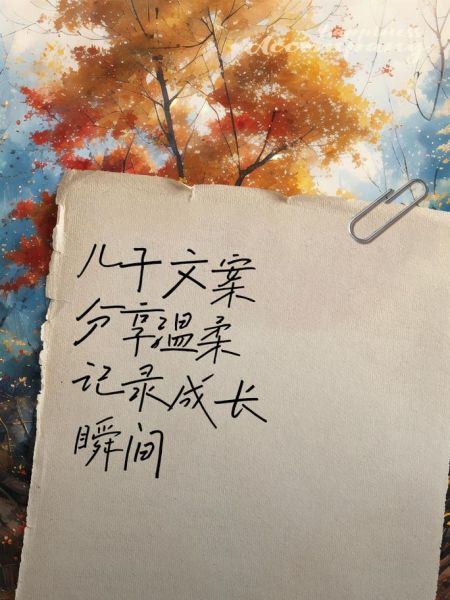 儿子文案
分享温柔
记录成长
瞬间